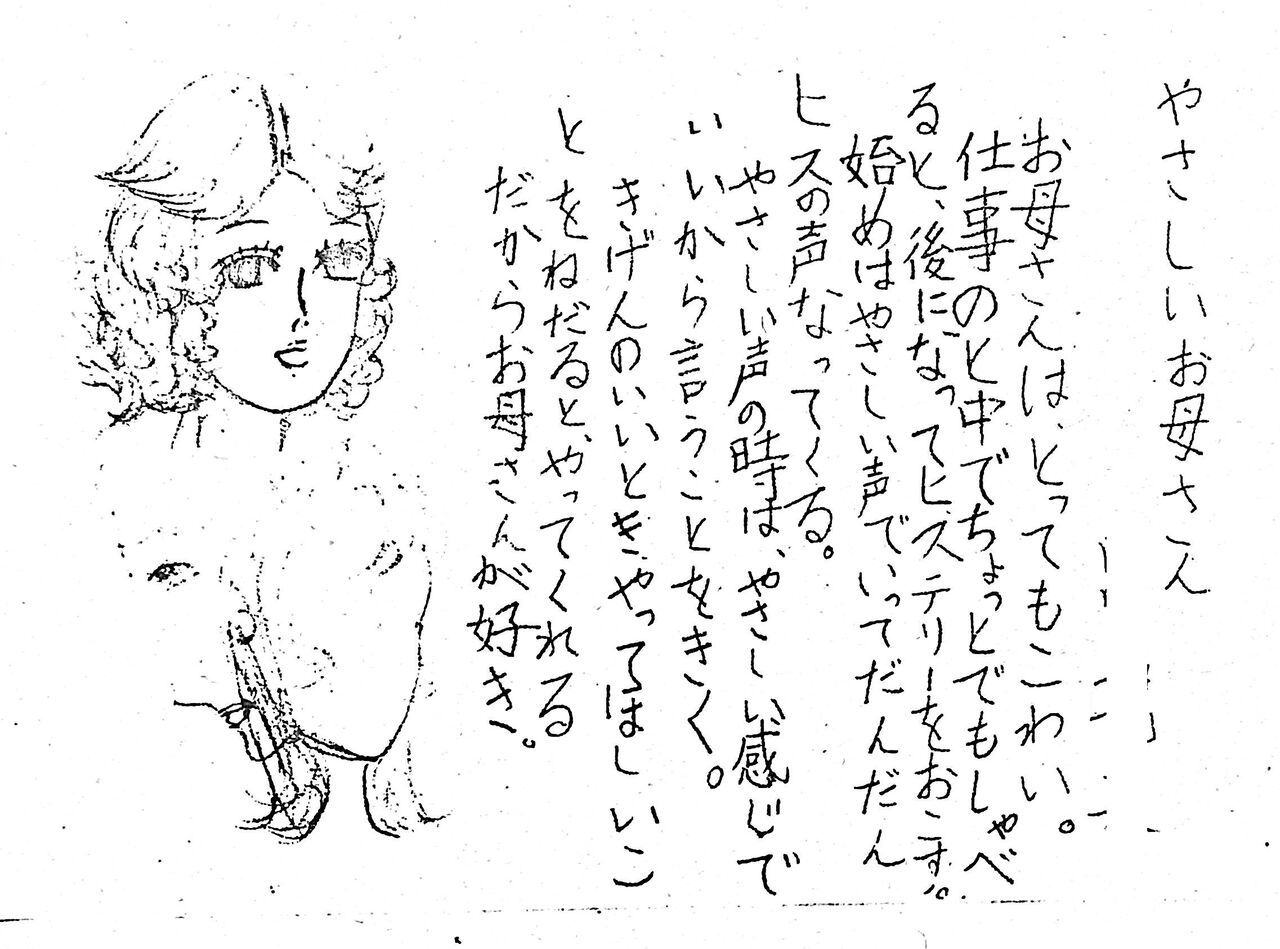 やさしいお母さん
お母さんは、とってもこわい。
仕事のと中でちょっとでもしゃべ
ると、後になってヒステリーをおこす。
始めはやさしい声でいってだんだん
ヒスの声なってくる。
やさしい声の時は、やさしい感じで
いいから言うことをきく。
きげんのいいときやってほしいこ
とをねだると、やってくれる
だからお母さんが好き。